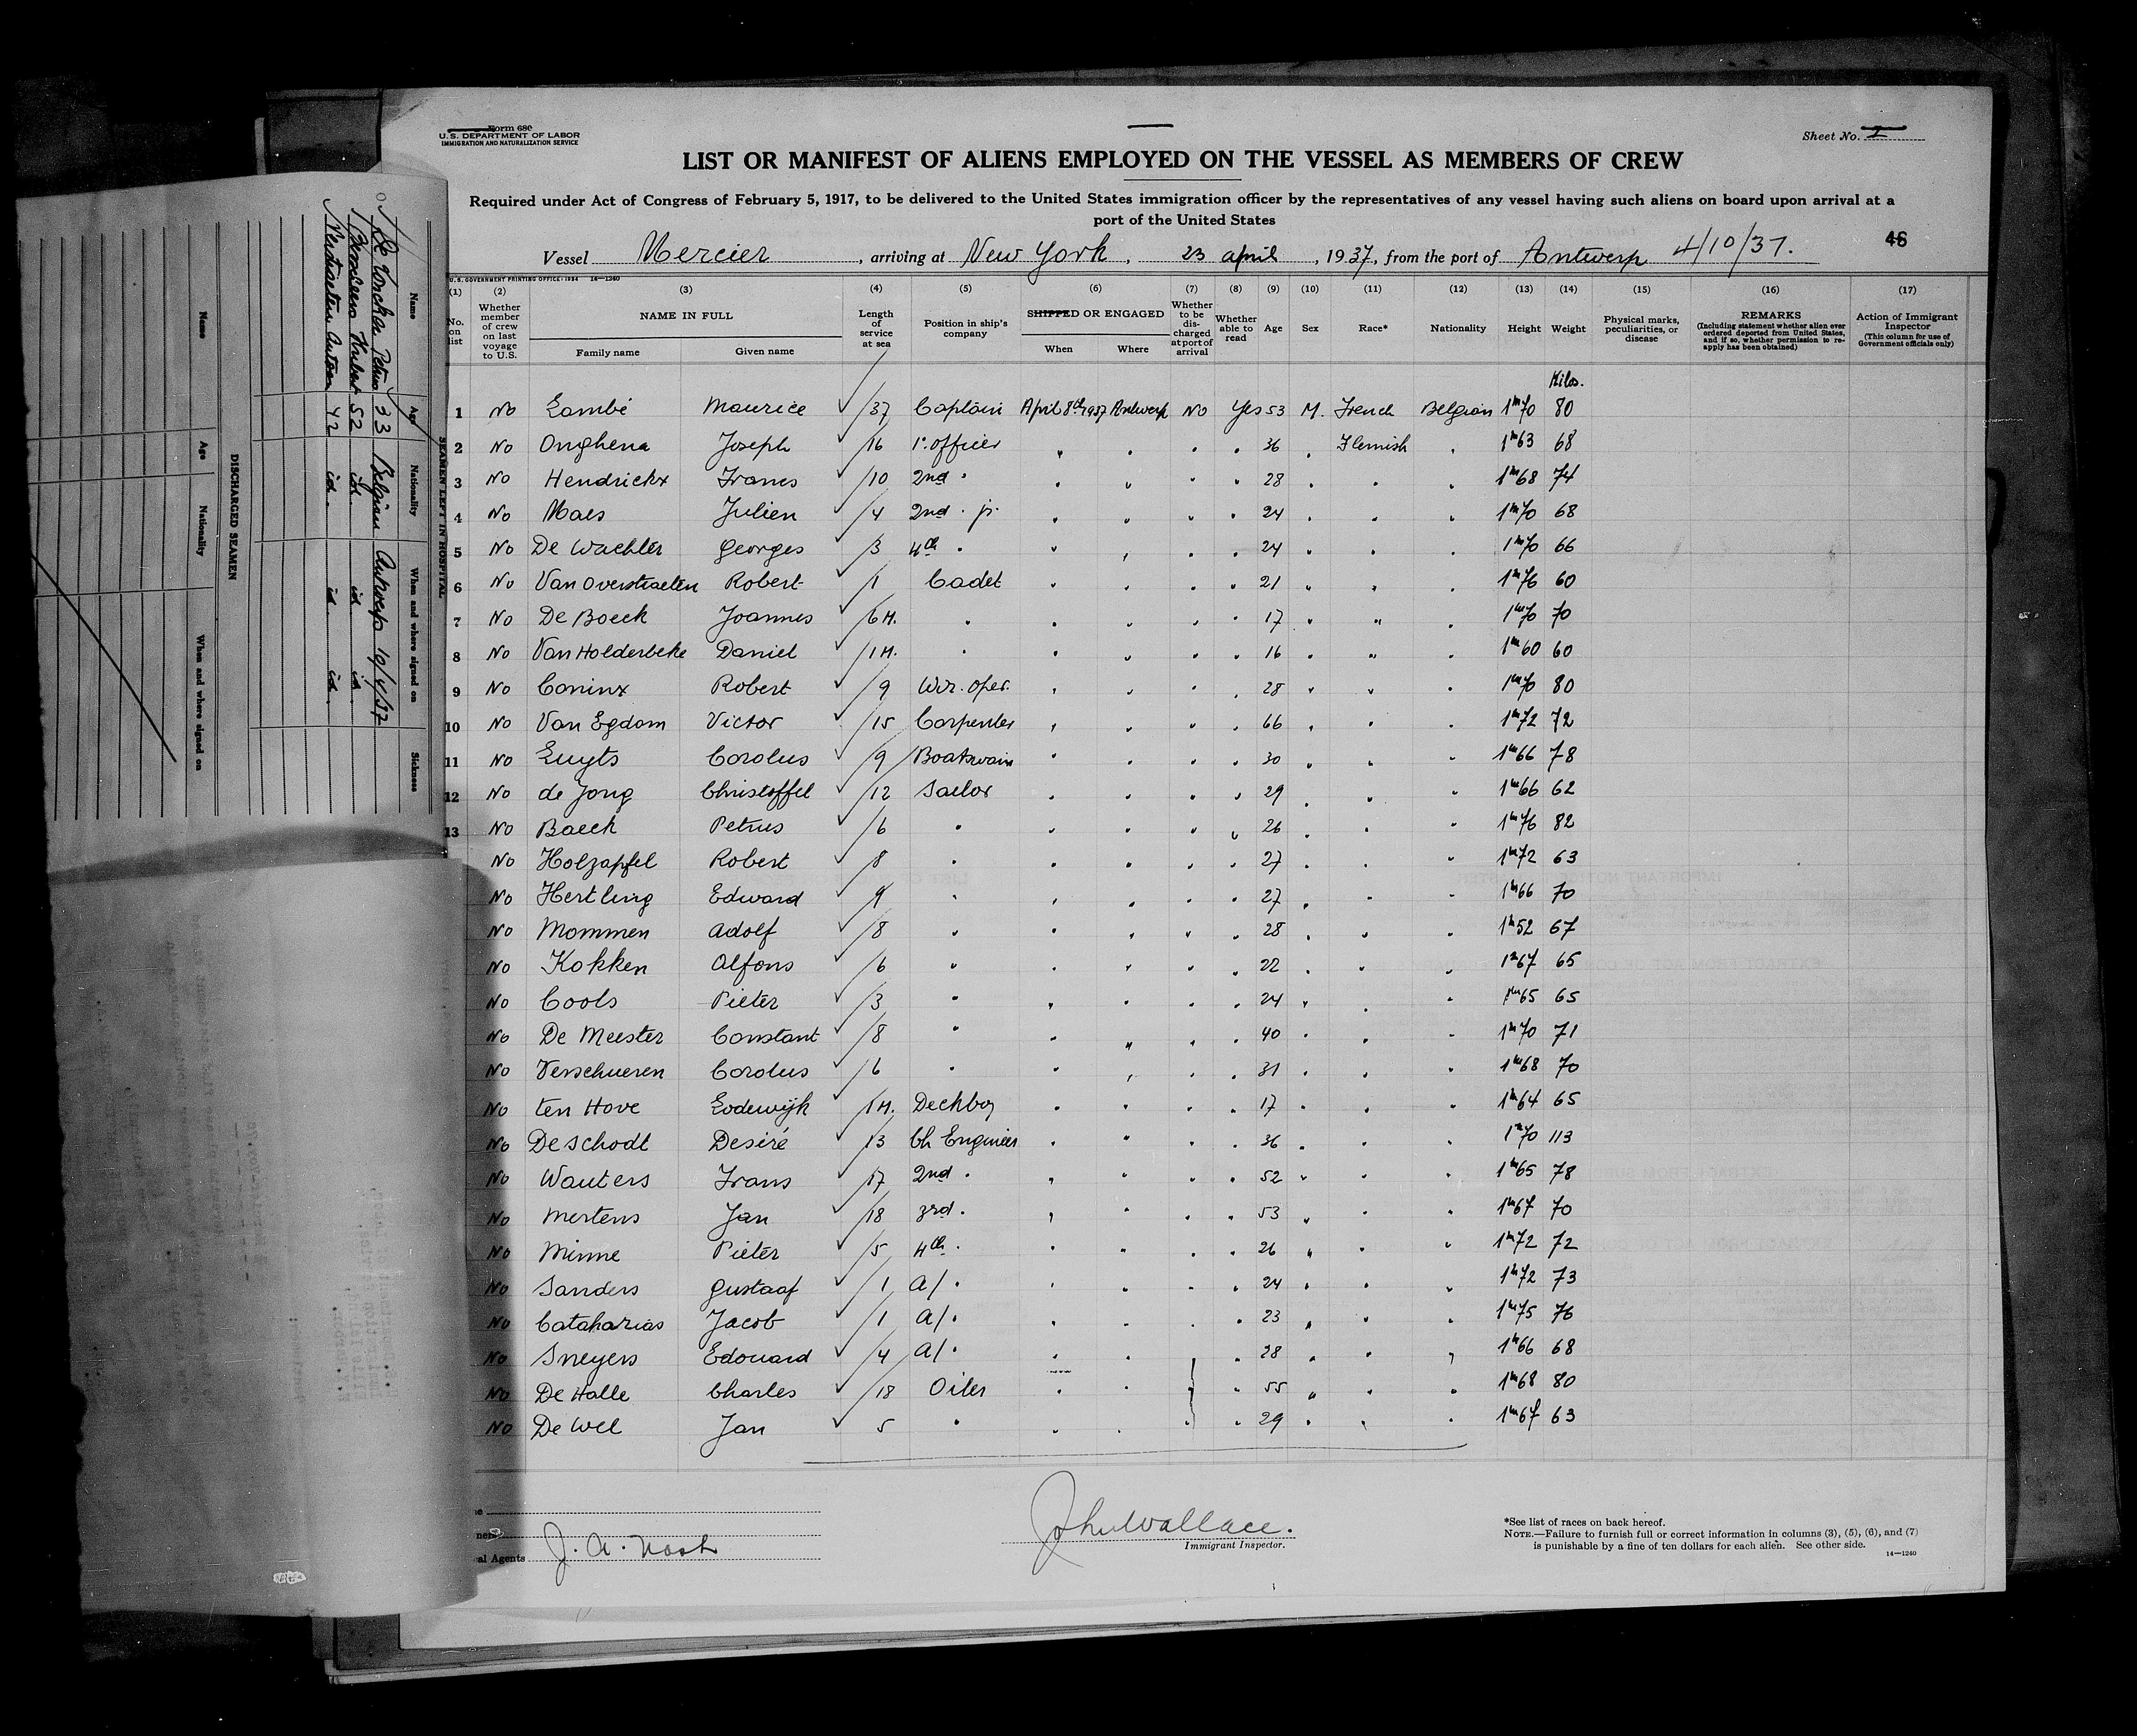 Form 680
U. S. DEPARTMENT OF LABOR
IMMIGRATION AND NATURALIZATION SERVICE
Sheet No. I
LIST OR MANIFEST OF ALIENS EMPLOYED ON THE VESSEL AS MEMBERS OF CREW
Required under Act of Congress of February 5, 1917, to be delivered to the United States immigration officer by the representatives of any vessel having such aliens on board upon arrival at a
port of the United States
46
Vessel Mercier, arriving at New York, 23 april, 1937, from the port of Antwerp 4/10/37.
U.S. GOVERNMENT PRINTING OFFICE: 1934 14—1240
(1) (2) (3) (4) (5) (6) (7) (8) (9) (10) (11) (12) (13) (14) (15) (16) (17)
No. on list
Whether member of crew on last voyage to U.S.
NAME IN FULL
Family name Given name
Length of service at sea
Position in ship's company
SHIPPED OR ENGAGED
When Where
Whether to be discharged at port of arrival
Whether able to read
Age Sex Race* Nationality Height Weight
Physical marks, peculiarities, or disease
REMARKS
(Including statement whether alien ever ordered deported from United States, and if so, whether permission to reapply has been obtained)
Action of Immigrant Inspector
(This column for use of Government officials only)
Kilos.
1 No Lambé Maurice 37 Captain April 8th 1937 Antwerp No Yes 53 M. French Belgian 1m70 80
2 No Onghena Joseph 16 1° officer " " " " 36 " Flemish " 1m63 68
3 No Hendrickx Frans 10 2nd " " " " " 28 " " " 1m68 74
4 No Maes Julien 4 2nd " jr. " " " " 24 " " " 1m70 68
5 No De Wachter Georges 3 4th " " " " " 24 " " " 1m70 66
6 No Van Overstraeten Robert 1 Cadet " " " " 21 " " " 1m76 60
7 No De Boeck Joannes 6 M. " " " " " 17 " " " 1m70 70
8 No Van Holderbeke Daniel 1 M. " " " " " 16 " " " 1m60 60
9 No Coninx Robert 9 Wir. oper. " " " " 28 " " " 1m70 80
10 No Van Egdom Victor 15 Carpenter " " " " 66 " " " 1m72 72
11 No Luyts Carolus 9 Boatswain " " " " 30 " " " 1m66 78
12 No de Jong Christoffel 12 Sailor " " " " 29 " " " 1m66 62
13 No Baeck Petrus 6 " " " " " 26 " " " 1m76 82
No Holzapfel Robert 8 " " " " " 27 " " " 1m72 63
No Hertling Edward 9 " " " " " 27 " " " 1m66 70
No Mommen Adolf 8 " " " " " 28 " " " 1m52 67
No Kokken Alfons 6 " " " " " 22 " " " 1m67 65
No Cools Pieter 3 " " " " " 24 " " " 1m65 65
No De Meester Constant 8 " " " " " 40 " " " 1m70 71
No Verschueren Carolus 6 " " " " " 31 " " " 1m68 70
No ten Hove Lodewijk 1 M. Deckboy " " " " 17 " " " 1m64 65
No De Schodt Desiré 13 Ch Engineer " " " " 36 " " " 1m70 113
No Wauters Frans 17 2nd " " " " " 52 " " " 1m65 78
No Mertens Jan 18 3rd " " " " " 53 " " " 1m67 70
No Minne Pieter 5 4th " " " " " 26 " " " 1m72 72
No Sanders Gustaaf 1 a/ " " " " " 24 " " " 1m72 73
No Cataharias Jacob 1 a/ " " " " " 23 " " " 1m75 76
No Sneyers Edouard 4 a/ " " " " " 28 " " " 1m66 68
No De Halle Charles 18 Oiler " " " " 55 " " " 1m68 80
No De Wel Jan 5 " " " " " 29 " " " 1m67 63
al Agents J. A. Nash
John Wallace.
Immigrant Inspector.
*See list of races on back hereof.
NOTE.—Failure to furnish full or correct information in columns (3), (5), (6), and (7)
is punishable by a fine of ten dollars for each alien. See other side.
14—1240
SEAMEN LEFT IN HOSPITAL
Name Age Nationality When and where signed on Sickness
33 Belgian Antwerp 10/4/37
Hubert 52 id. id id.
Antoon 42 id. id. id.
DISCHARGED SEAMEN
Name Age Nationality When and where signed on